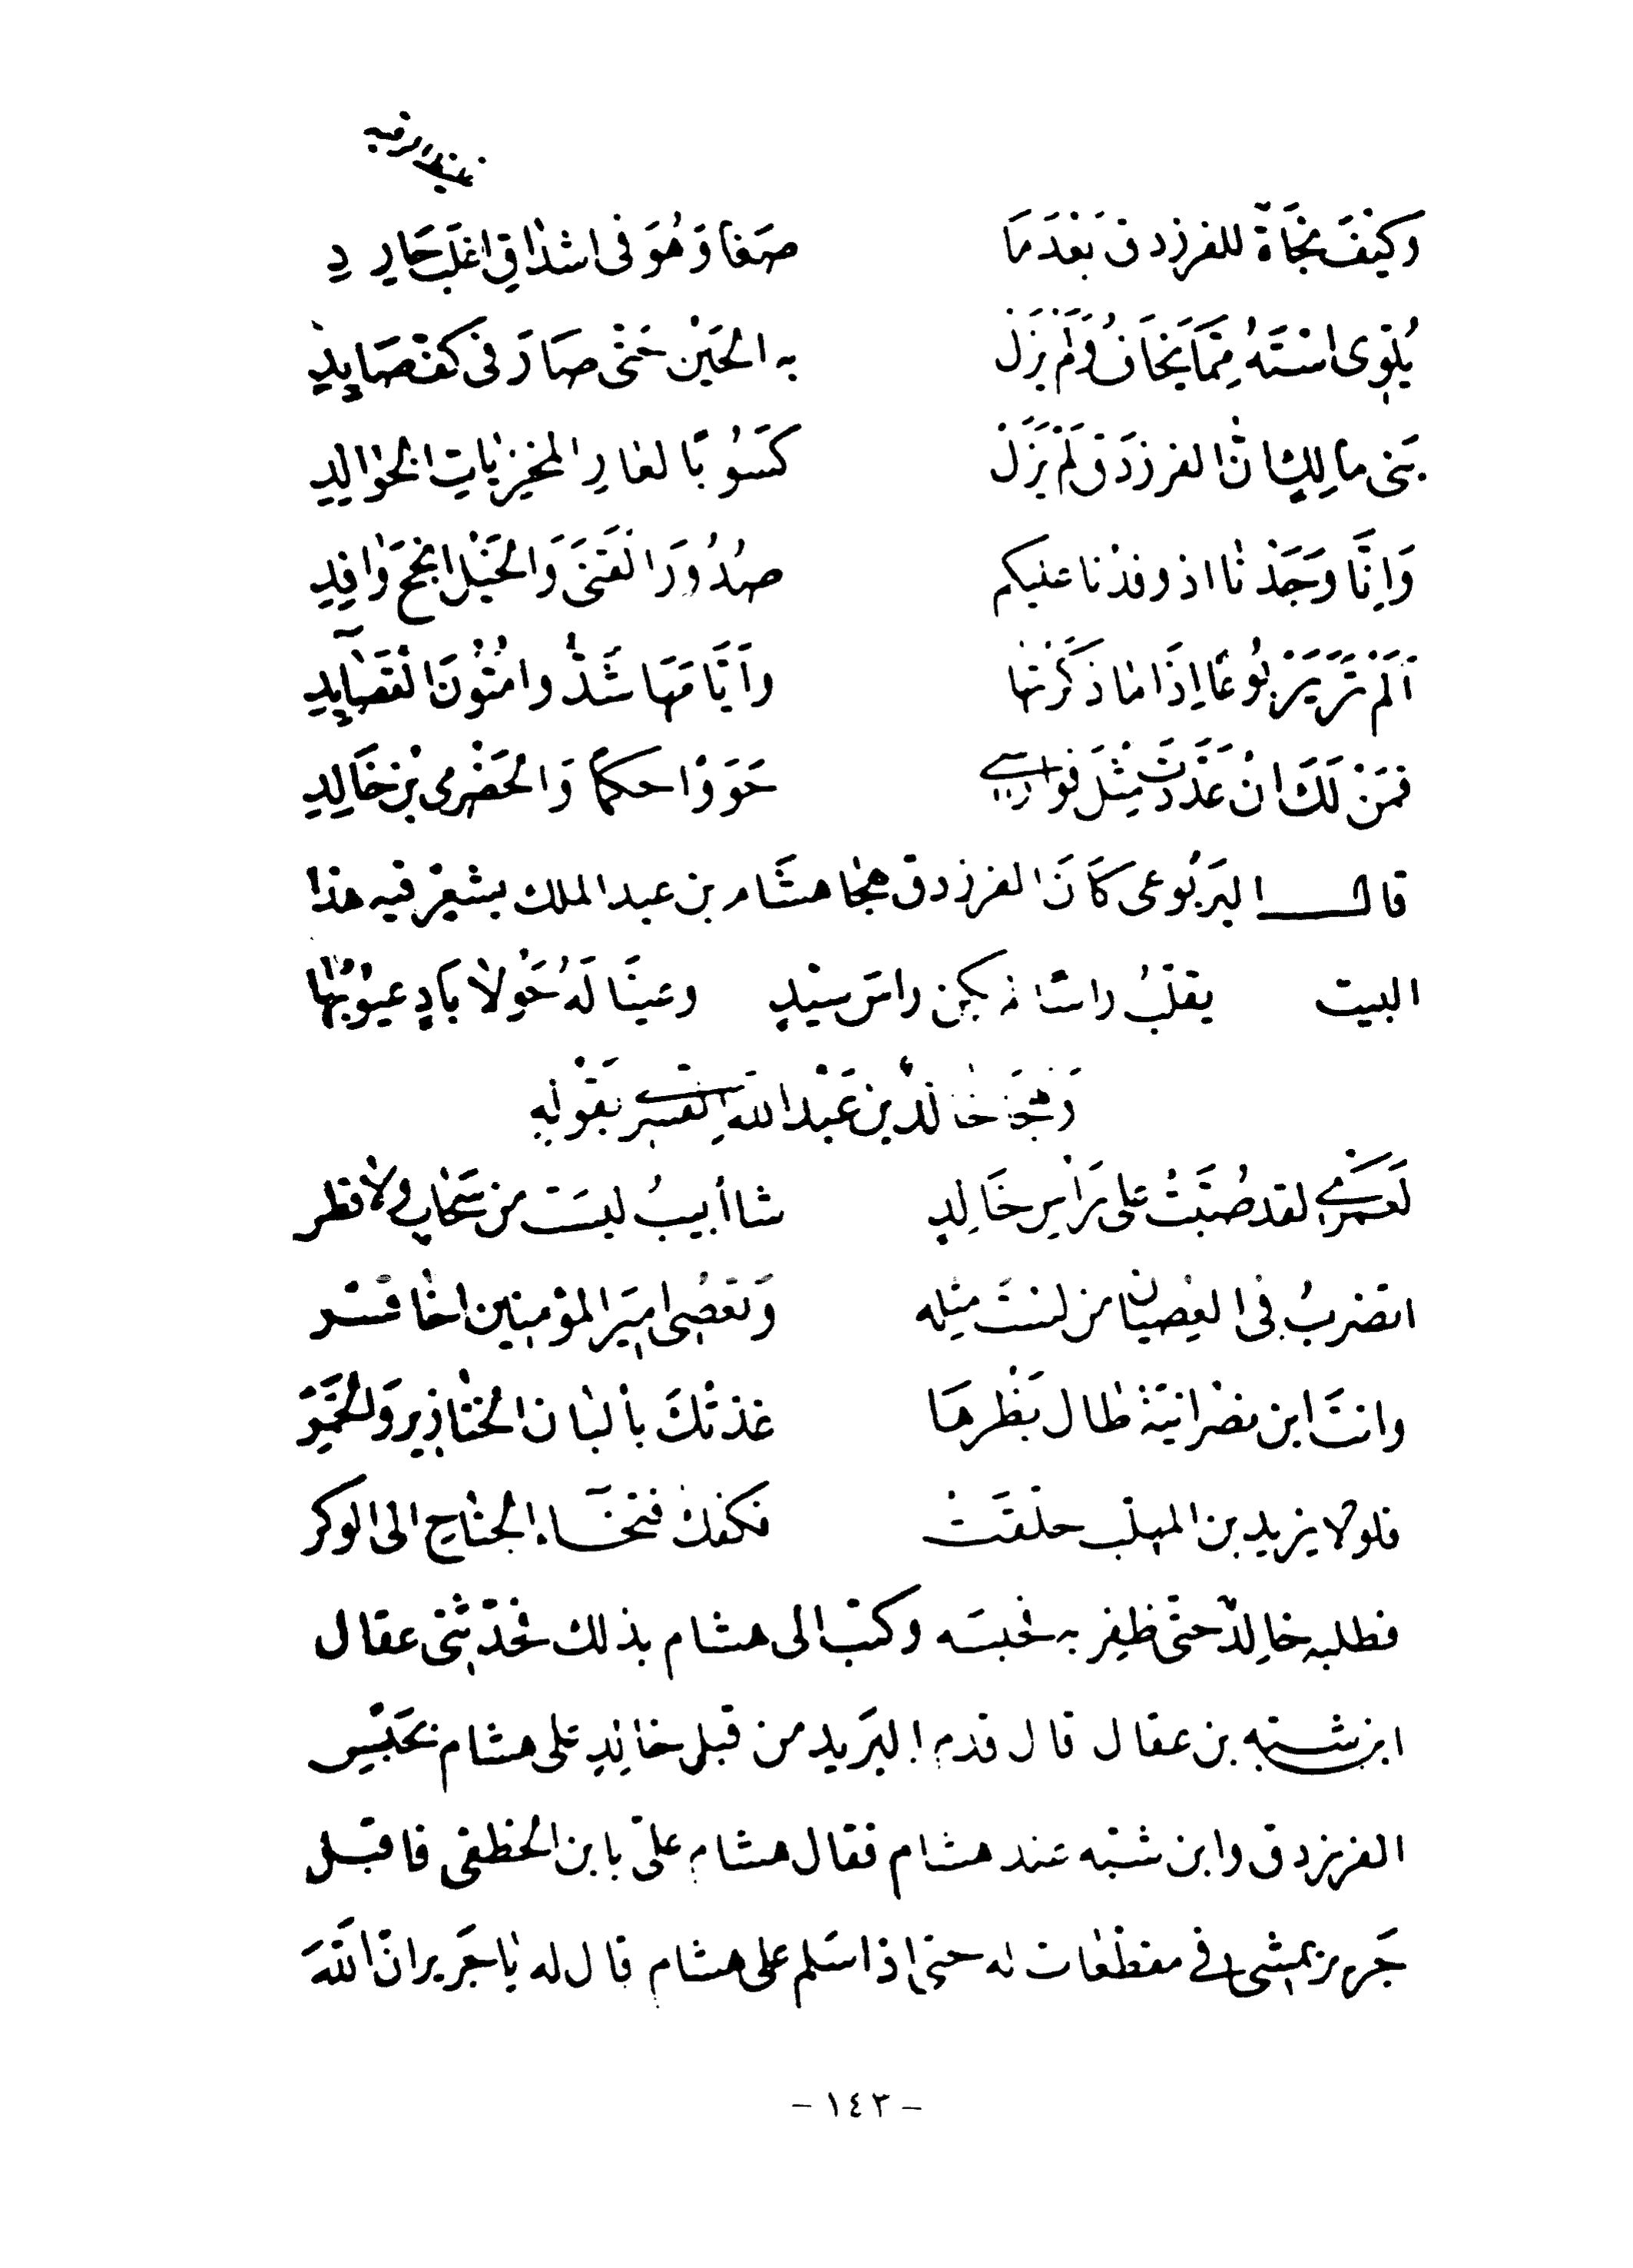 وَكَيْفَ نَجَاةٌ للفرزدق بَعْدَمَا ضَغَا وَهُوَ فى اشدَاقِ اغلَبَ حَارِدِ
يُلَوِّى اسْتَهُ مِمَّا يَخَافُ وَلَمْ يَزَلْ بِه الحَيْن حَتَّى صَارَ فى كَفِّ صَايِدِ
بَنِى مالِكٍ انَّ الفرزدَقَ لَمْ يَزَلْ كَسُوبًا لعَارِ المخزِيَاتِ الخَوَالِدِ
وَاِنَّا وَجَدْنَا اذ وفدْنا عليكم صُدُورَ القَنَى وَالخَيْل انجَحَ وَافِدِ
اَلَمْ تَرَ يَرْبُوعًا اِذَا مَا ذَكَرْتَهَا واَيَّامَهَا شَدُّوا مُتُونَ القَصَايِدِ
فَمَنْ لَكَ انْ عَدَّدْتَ مِثْلَ فَوَارِسِى حَوَوْا حكمًا وَالحَضْرمى بْن خَالِدِ
قال اليَرْبُوعى كَانَ الفرزدق هجَا هشَام بن عبد الملك بشِعْرٍ فيه هذا
البيت يقلّبُ راسًا لم يكن راسَ سيّدٍ وعينًا لَهُ حَوْلاَ بَادٍ عيُوبُهَا
وَهَجَا خَالدَ بن عَبْد اللهِ القَسْرِى بقَوْلِهِ
لَعَمْرِى لقد صُبَّتْ على ظهر خَالِدٍ شاأبيبُ ليسَت من سَحَابٍ ولا قطر
اتضربُ فى العِصْيان من لستَ مِثله وَتَعْصِى امِيَر المؤمِنِين اخَا قسْر
وانتَ ابن نصْرانيّة طَال بَظْرهَا غذتْكَ بأَلبَان الخنَازِير وَالخَمْرِ
فلولا يزيد بن المهلّب حلّقَتْ بكفك فتخَاء الجنَاح الى الوكر
فطلبه خالِدٌ حتَّى ظفِر به فحبسَه وكتب الى هشام بذلك فحَدَّثنِى عقال
ابن شبّه بن عقال قال قدم البَريد من قبل خَالِدٍ على هشام بحَبْسِ
الفرزدق وابن شبّه عند هشام فقال هشام علىّ بابن الخطفى فاقبل
جَرِير يمشِى فى مقطعَات له حتى اذا سَلم على هشام قال له يَا جَرِير ان اللهَ
- ١٤٣ -